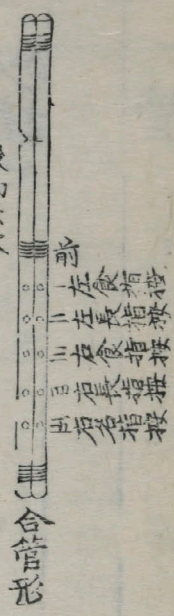 前
一左食指按
二左長指按
三右食指按
四右長指按
五右名指按
合管形